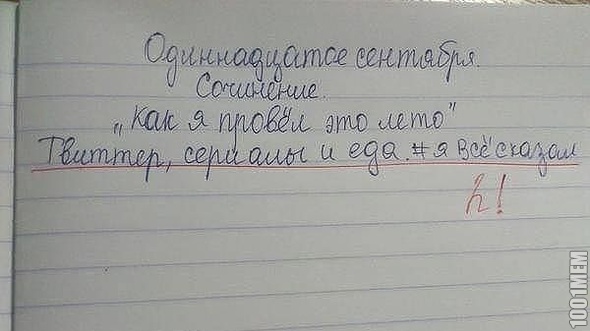 Одиннадцатое сентября.
Сочинение.
„Как я провёл это лето"
Твиттер, сериалы и еда. #я всё сказал
2!
1001MEM